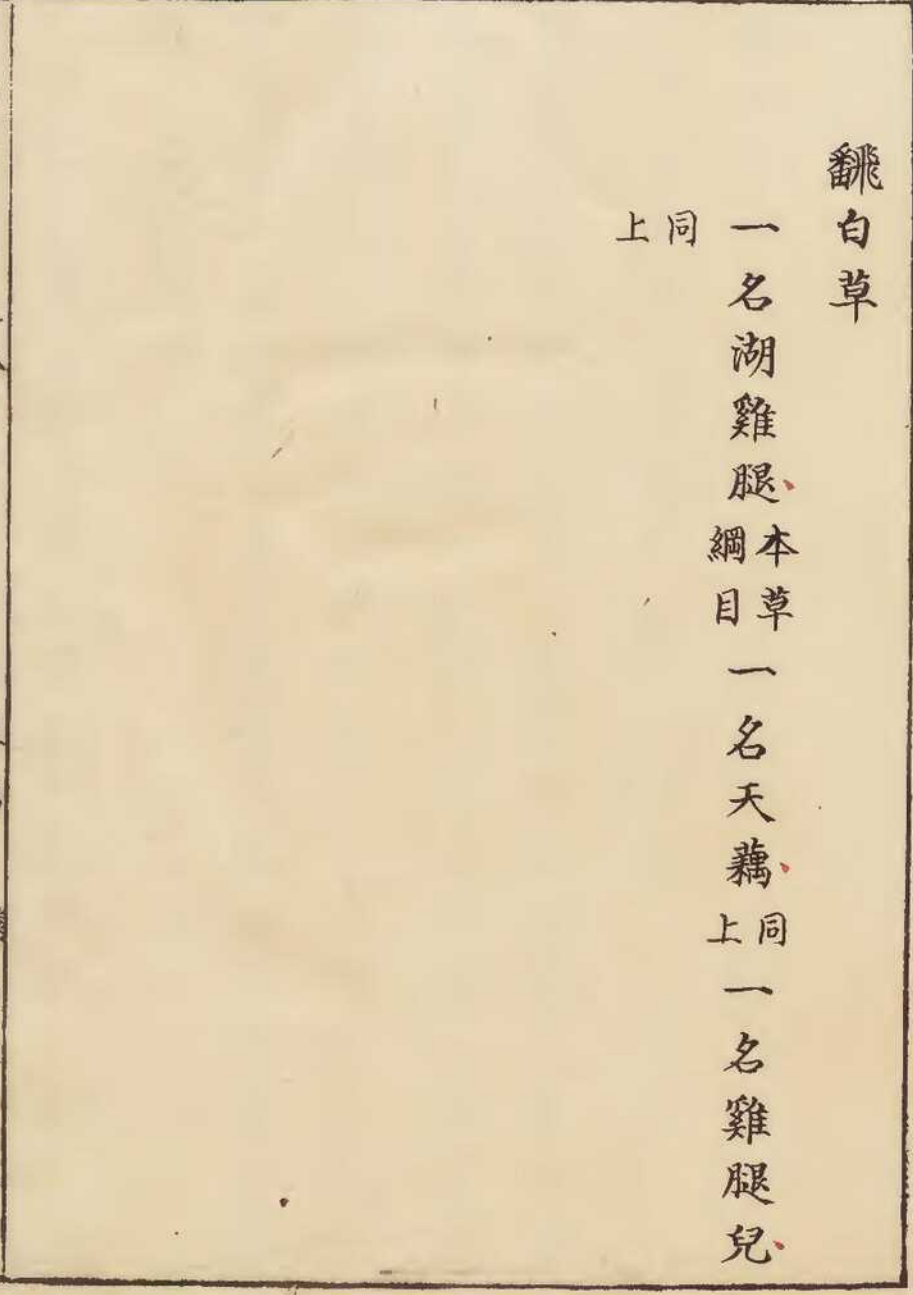 飜白草
一名湖雞腿本草綱目一名天藕同上一名雞腿兒
同上